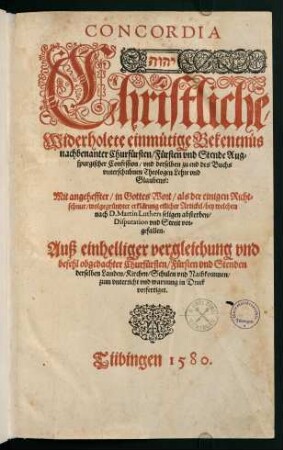 CONCORDIA
יהוה
Christliche/
Widerholete einmütige Bekentnüs
nachbenanter Churfürsten/ Fürsten vnd Stende Aug-
spurgischer Confession/ vnd derselben zu end des Buchs
vnterschribnen Theologen Lehre vnd
Glaubens:
Mit angeheffter/ in Gottes Wort/ als der einigen Richt-
schnur/ wolgegründter erklärung etlicher Artickel/ bey welchen
nach D. Martin Luthers seligen absterben/
Disputation vnd Streit vor-
gefallen.
Auß einhelliger vergleichung vnd
befehl obgedachter Churfürsten/ Fürsten vnd Stenden
derselben Landen/ Kirchen/ Schulen vnd Nachkommen/
zum vnterricht vnd warnung in Druck
verfertiget.
Tübingen 1580.